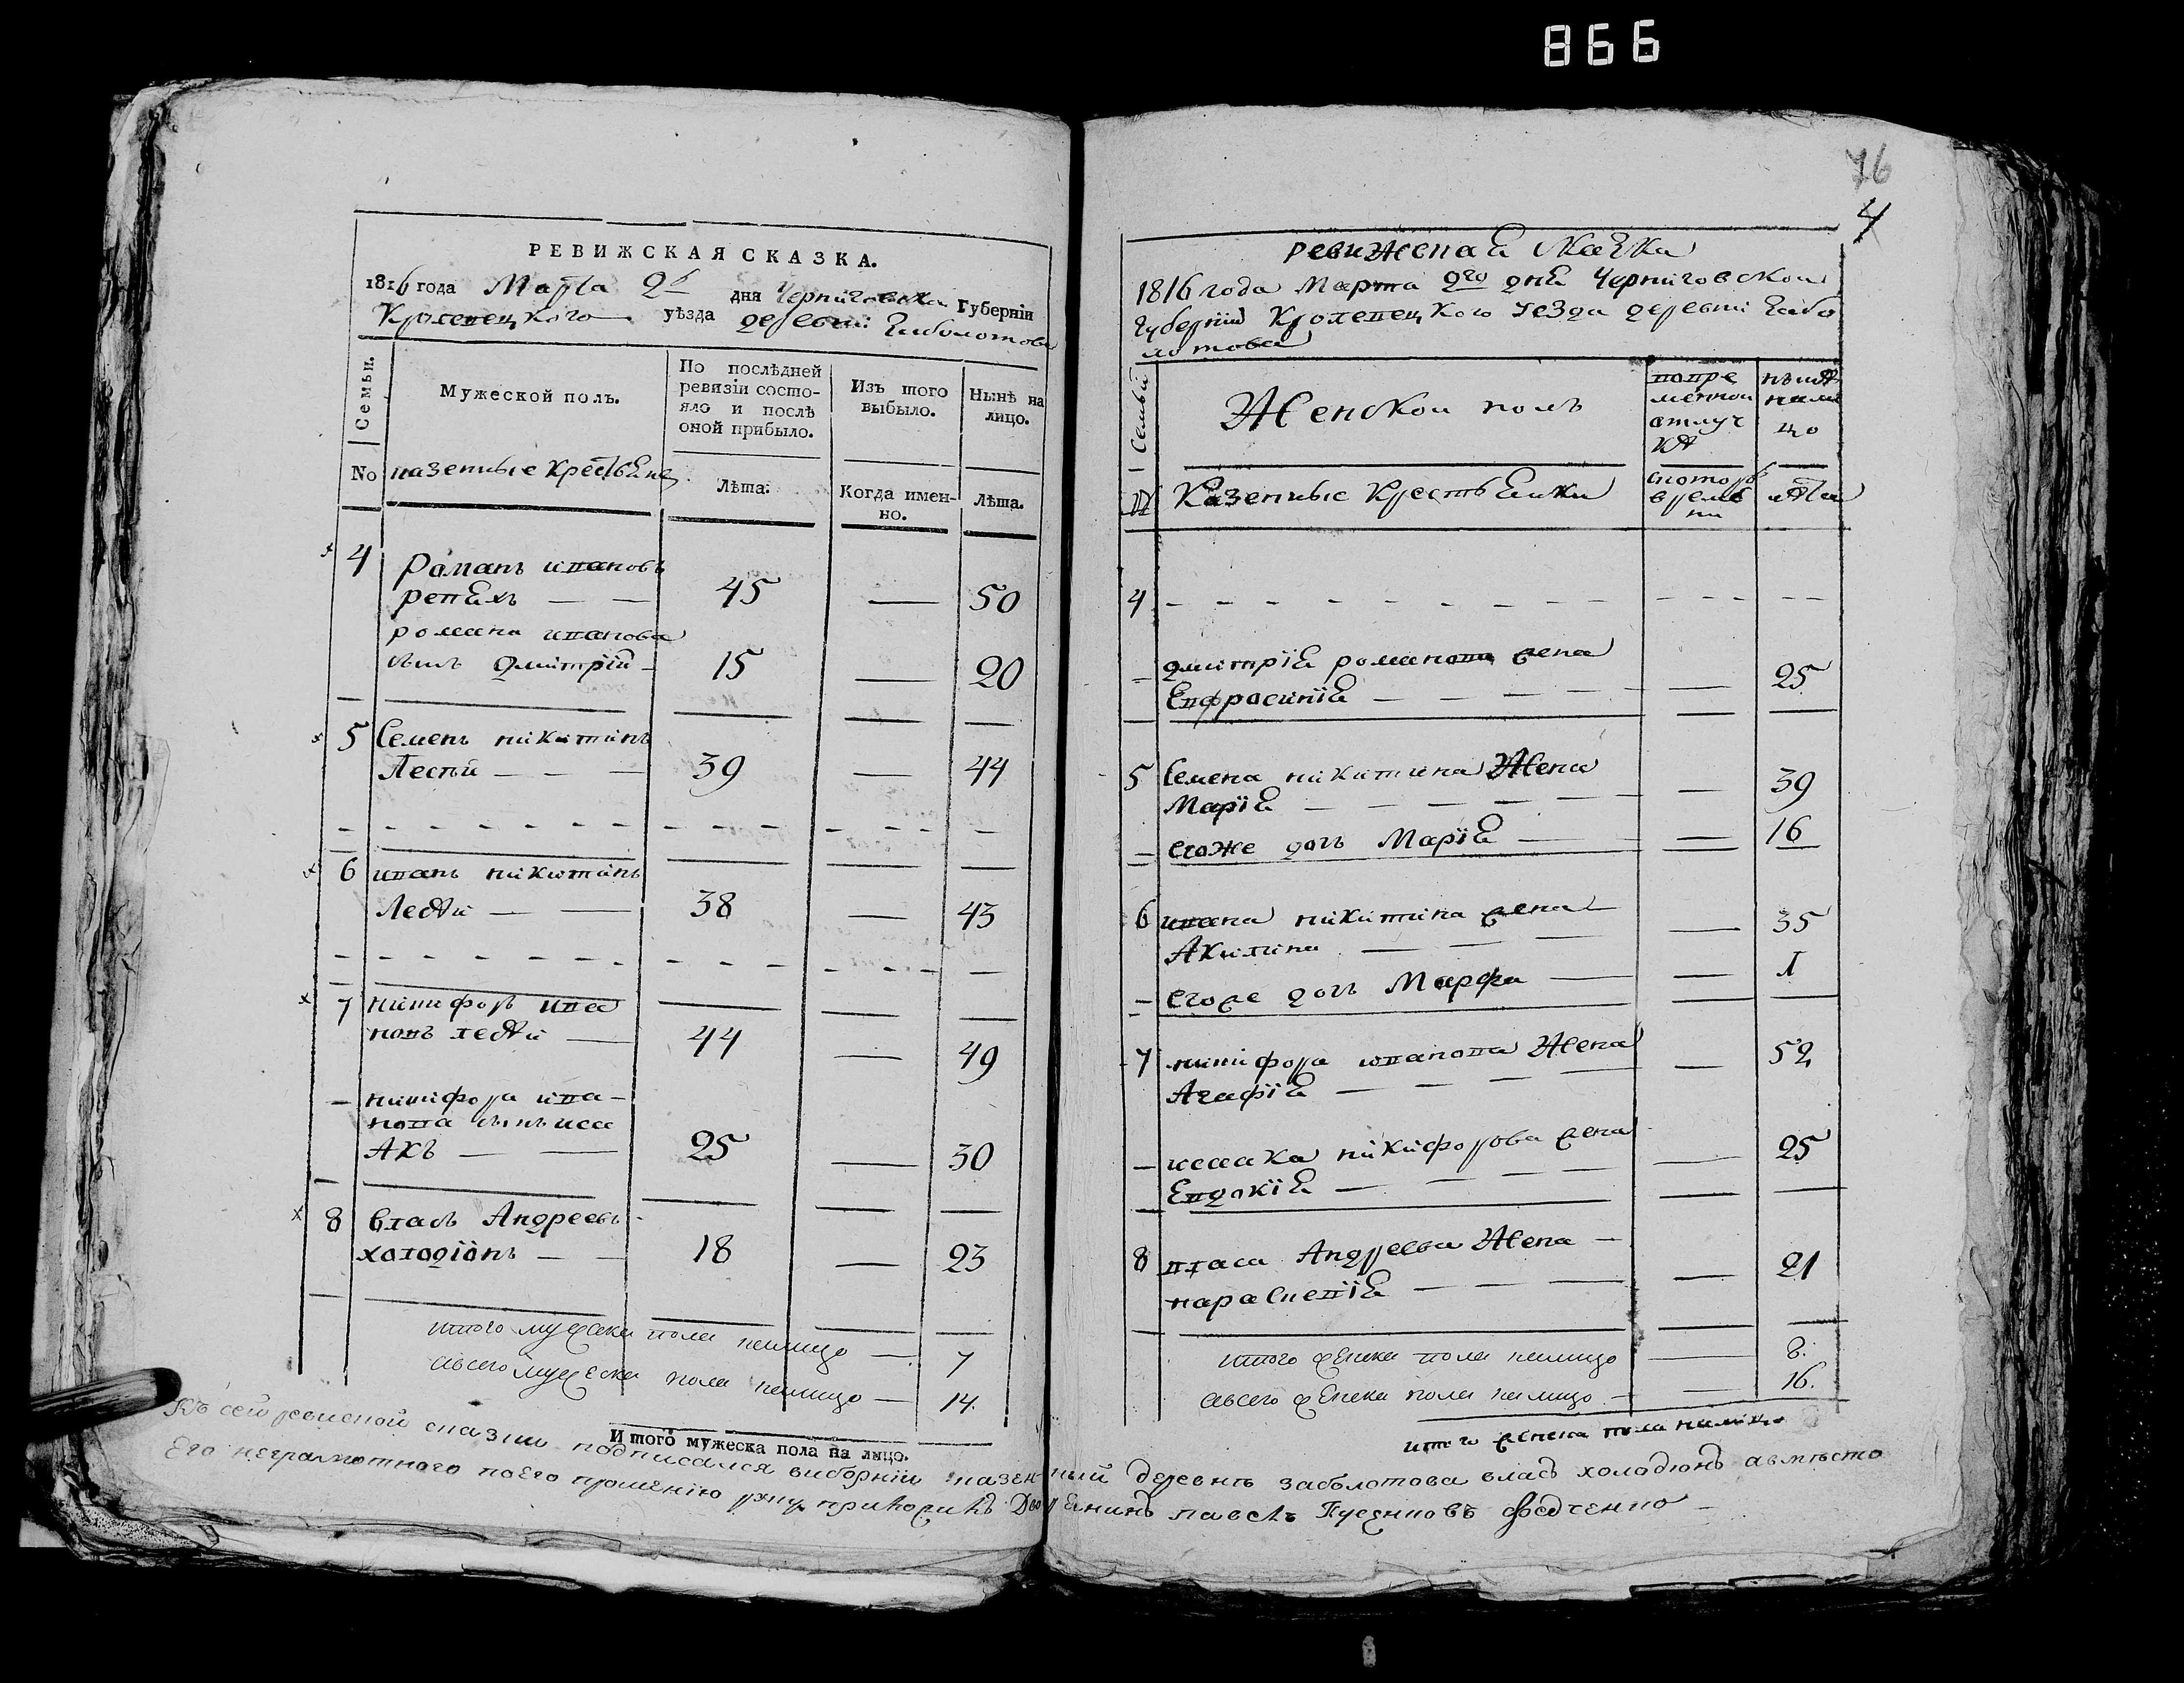 866
76
4
РЕВИЖСКАЯ СКАЗКА.
1816 года Марта 2 дня Черниговской Губерніи
Кролевецкого уѣзда деревни Заболотова
Семьи.
Мужеской полъ.
По послѣдней ревизіи состояло и послѣ оной прибыло.
Изъ того выбыло.
Нынѣ на лицо.
No
казенные крестьяне
Лѣта.
Когда именно.
Лѣта.
4 Романъ ивановъ
репяхъ — — 45 — 50
романа иванова
сынъ дмитрій — 15 — 20
5 Семенъ никитинъ
Лестьи — — — 39 — 44
6 иванъ никитинъ
Лести — — 38 — 43
7 никифоръ ива
новъ лести — 44 — 49
— никифора ива-
нова сынъ иса
акъ — — 25 — 30
8 власъ Андреевъ
холодіонъ — — 18 — 23
итого мужска пола налицо — 7
авсего мужеска пола налицо — 14.
Итого мужеска пола на лицо.
ревижская сказка
1816 года Марта 2го дня Черниговской
Губерніи Кролевецкого уезда деревни Забо
лотова
Семьи
Женской полъ
вовре
менной
отлуч
кѣ
нынѣ
нали
цо
№ Казенные крестьянки
скоторъ
времѣ
ни
лѣта
4 - - - - - - - - - -
— дмитрія романова жена
Евфросинія — — — — — — 25
5 Семена никитина Жена
Марія — — — — — — 39
— егоже дочь Марія — — 16
6 ивана никитина жена
Акилина — — — — 35
— егоже дочь Марфа — — 1
7 никифора иванова Жена
Агафія — — — — — 52
— исаака никифорова жена
Евдокія — — — — — 25
8 власа Андреева Жена —
параскевія — — — — 21
итого женска пола налицо — 8.
авсего женска пола налицо — — 16.
итого женска пола налицо
Къ сей ревиской сказки подписался виборній казенный деревнѣ заболотова власъ холодіонъ авмѣсто
Его неграмотного поего прошенію руку приложилъ Дворянинъ павелъ Федченко —